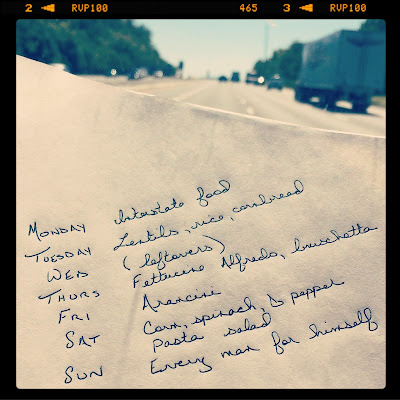 2 RVP100 465 3 RVP100
MONDAY Interstate food
TUESDAY Lentils, rice, cornbread
WED (leftovers)
THURS Fettucine Alfredo, bruschetta
FRI Arancini
SAT Corn, spinach, & pepper
pasta salad
SUN Every man for himself